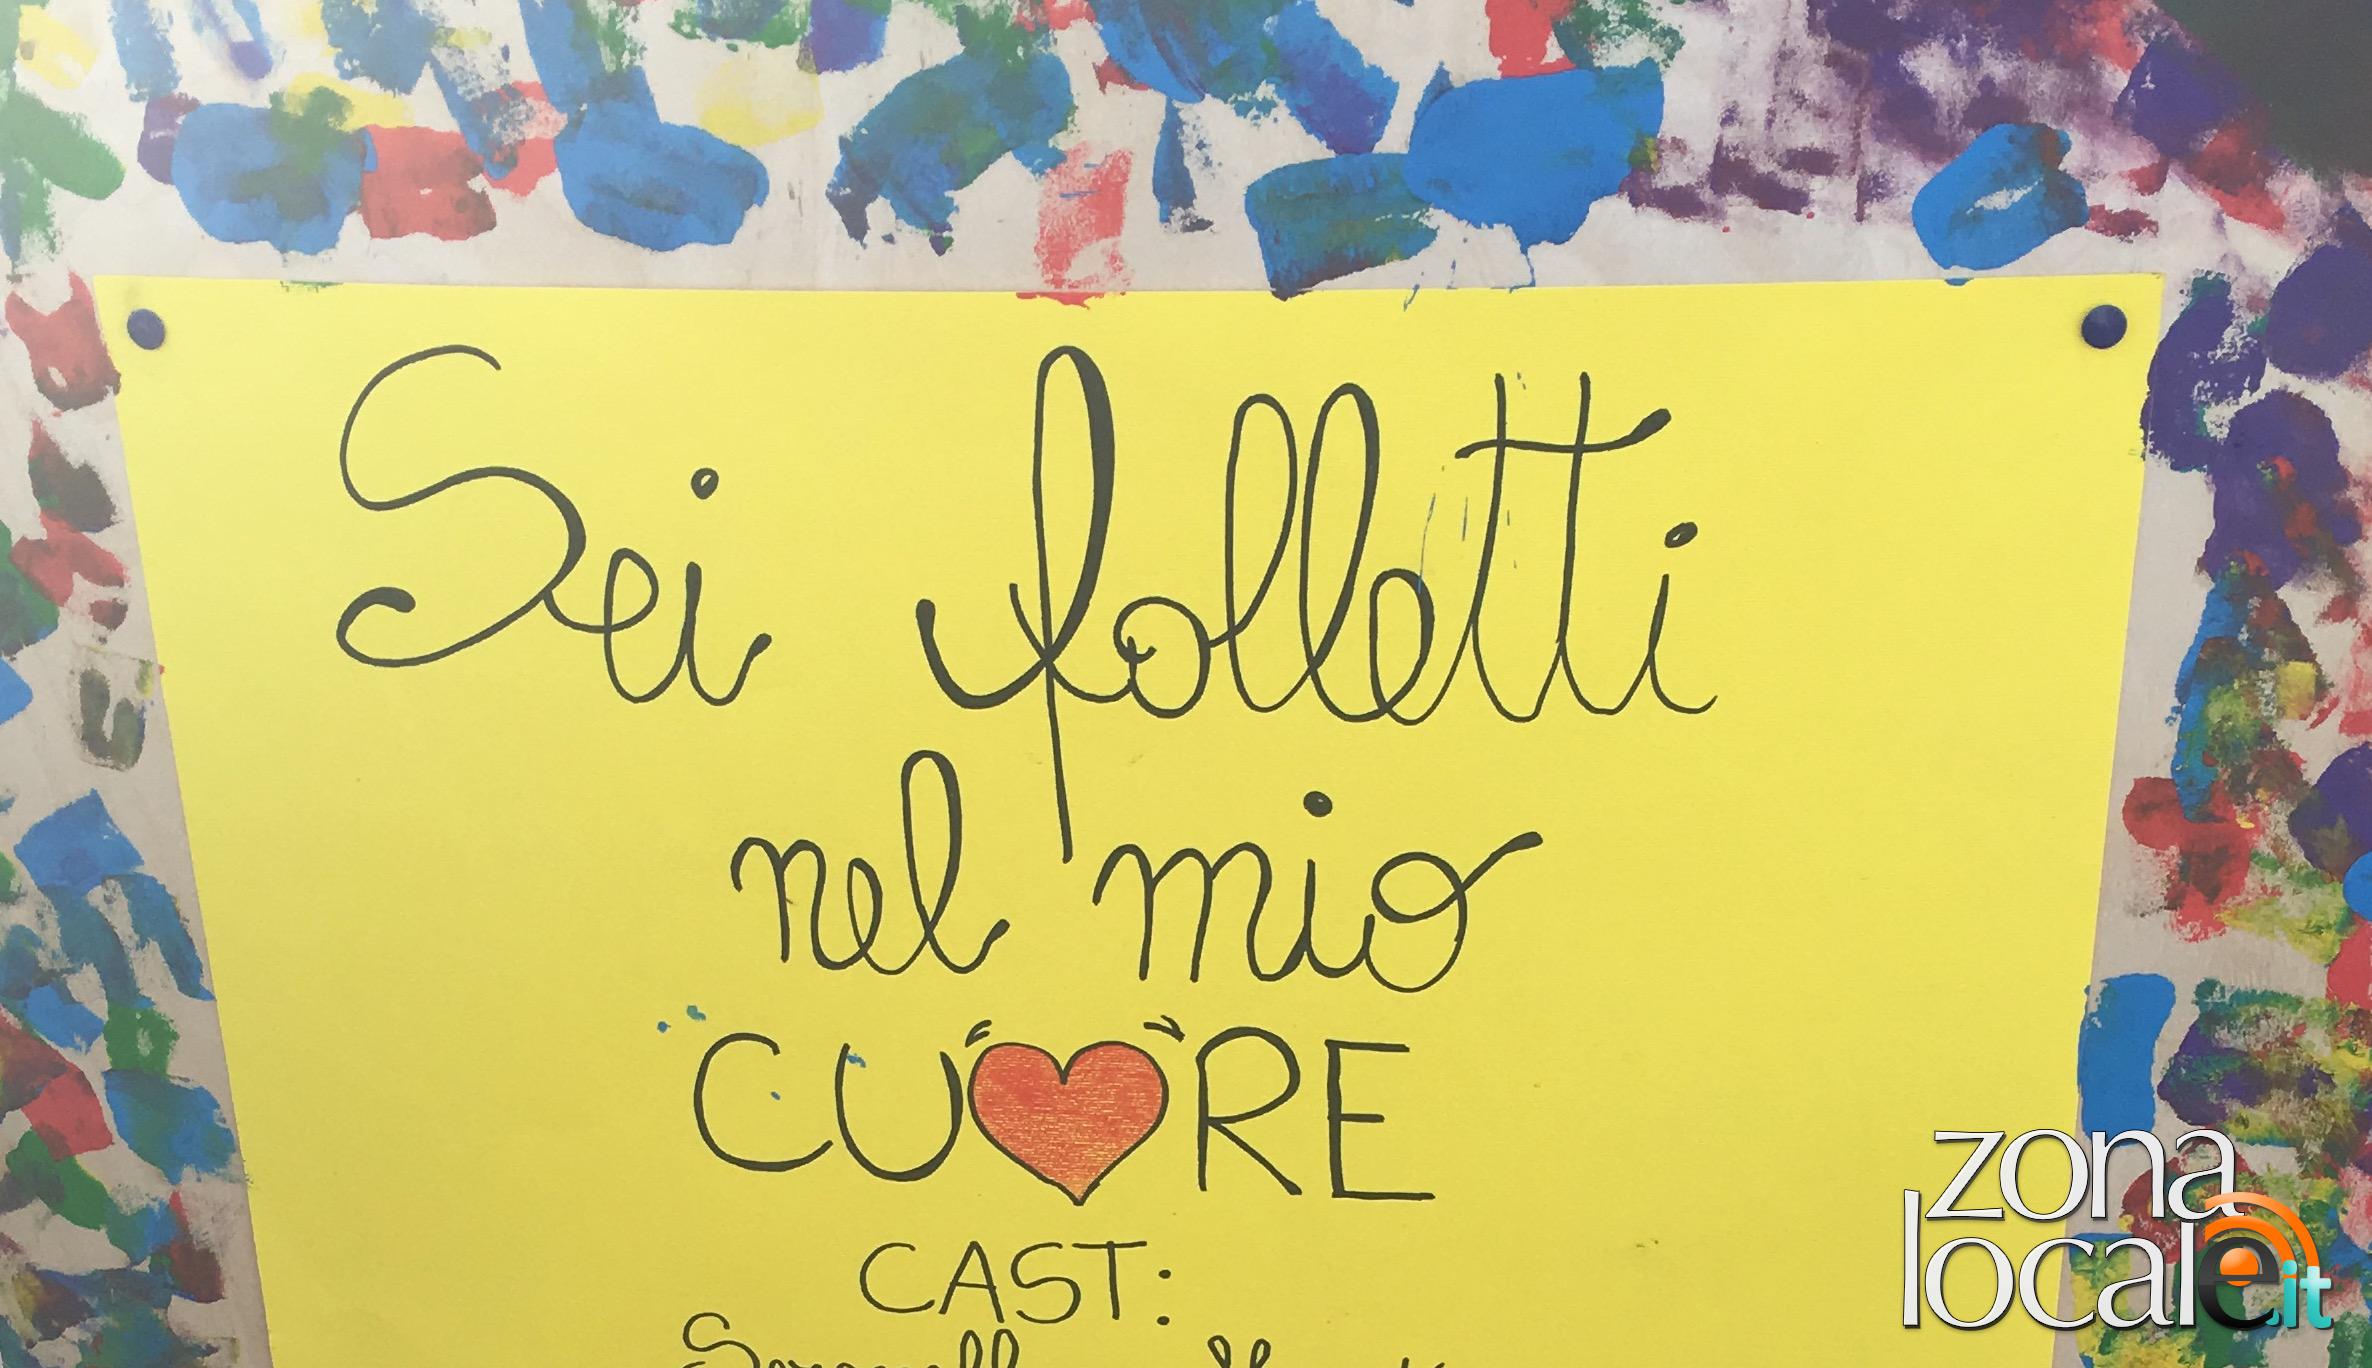 Sei folletti
nel mio
CUORE
CAST:
zona
locale.it